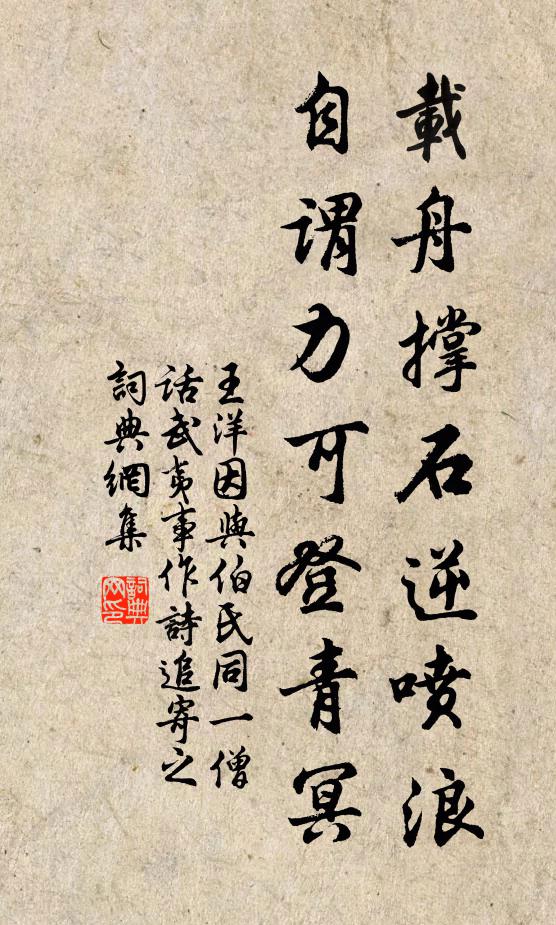 載舟撐石逆噴浪
自謂力可登青冥
王洋因與伯氏同一僧
話武夷事作詩追寄之
詞典網集
詞典
网印